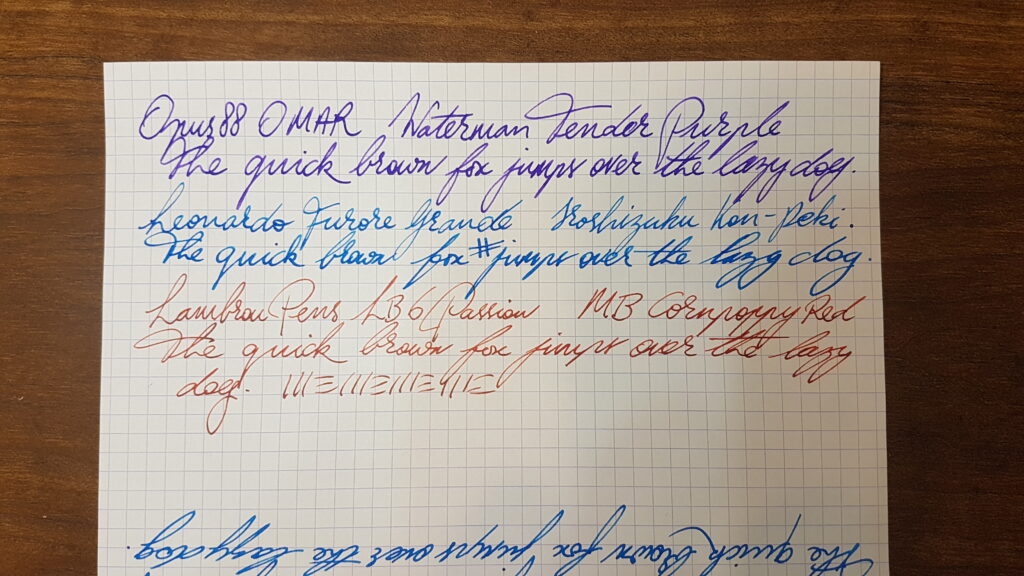 Opus 88 OMAR Waterman Tender Purple
The quick brown fox jumps over the lazy dog.
Leonardo Furore Grande Iroshizuku Kon-Peki.
The quick brown fox # jumps over the lazy dog.
Lambrou Pens LB6 Passion MB Cornpoppy Red
The quick brown fox jumps over the lazy
dog. IIIEIIIEIIIEIIIE
The quick brown fox jumps over the lazy dog.